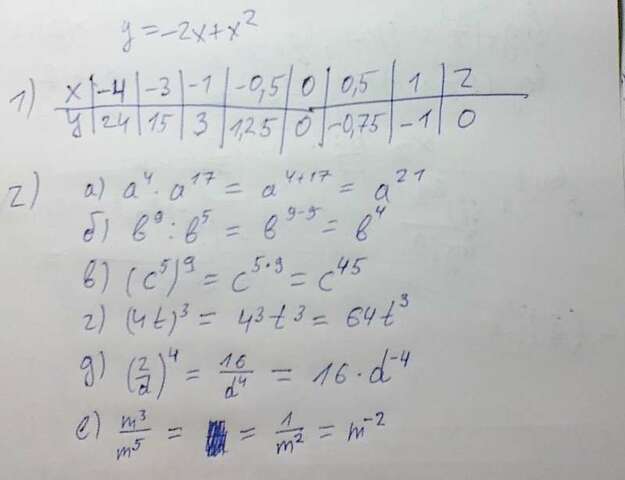 y = -2x + x²
1) x | -4 | -3 | -1 | -0,5 | 0 | 0,5 | 1 | 2
y | 24 | 15 | 3 | 1,25 | 0 | -0,75 | -1 | 0
2) а) a⁴ · a¹⁷ = a⁴⁺¹⁷ = a²¹
б) b⁹ : b⁵ = b⁹⁻⁵ = b⁴
в) (c⁵)⁹ = c⁵˙⁹ = c⁴⁵
г) (4t)³ = 4³t³ = 64t³
д) (2/d)⁴ = 16/d⁴ = 16 · d⁻⁴
е) m³/m⁵ = = 1/m² = m⁻²